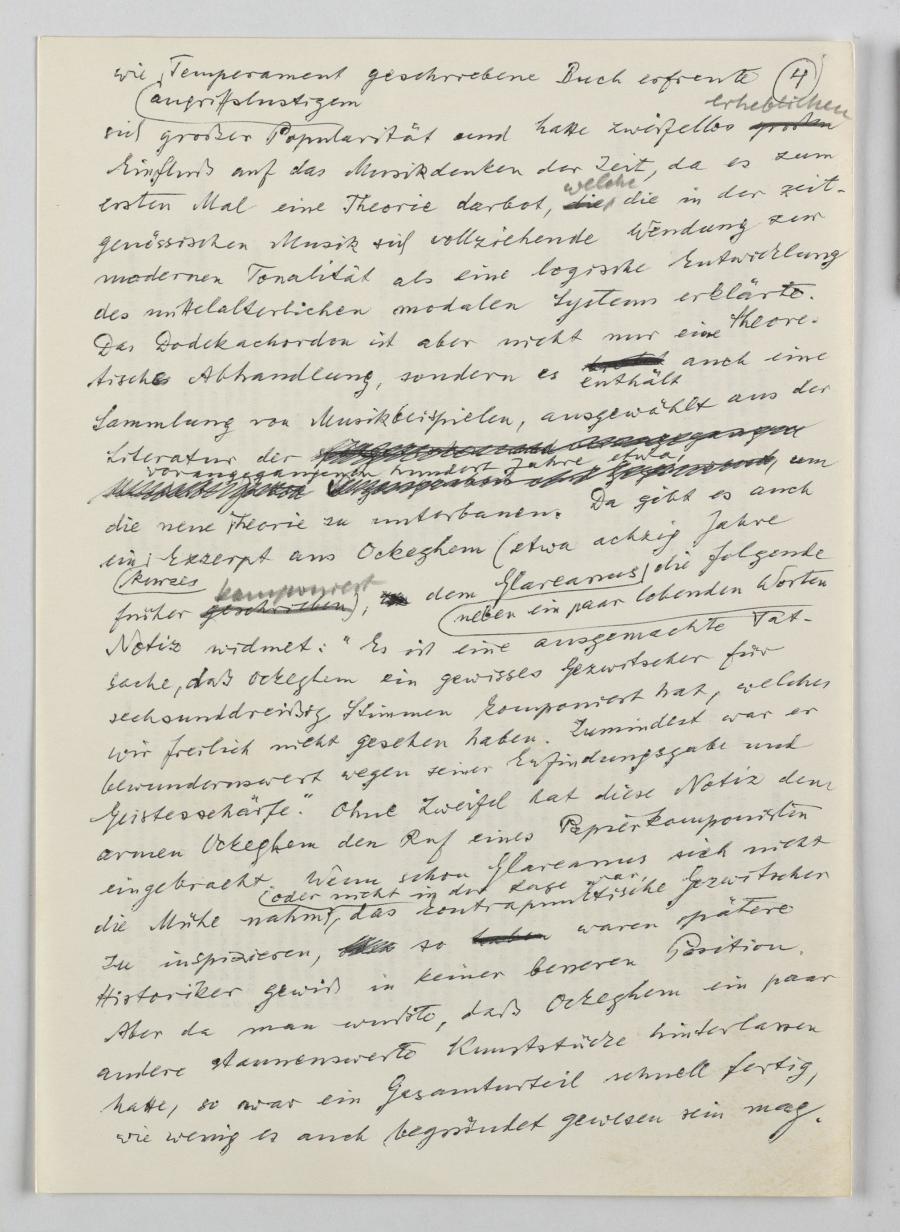 wie Temperament geschriebene Buch erfreute 4
angriffslustigem
erheblichen
sich großer Popularität und hatte zweifellos großen
Einfluß auf das Musikdenken der Zeit, da es zum
welche
ersten Mal eine Theorie darbot, die die in der zeit-
genössischen Musik sich vollziehende Wendung zur
modernen Tonalität als eine logische Entwicklung
des mittelalterlichen modalen Systems erklärte.
Das Dodekachordon ist aber nicht nur eine theore-
tische Abhandlung, sondern es auch eine
enthält
Sammlung von Musikbeispielen, ausgewählt aus der
Literatur der
vorangegangenen hundert Jahre etwa,
um
die neue Theorie zu unterbauen. Da gibt es auch
ein Exzerpt aus Ockeghem (etwa achzig Jahre
kurzes
komponiert
früher geschrieben), dem Glareanus die folgende
neben ein paar lobenden Worten
Notiz widmet: "Es ist eine ausgemachte Tat-
sache, daß Ockeghem ein gewisses Gezwitscher für
sechsunddreißig Stimmen komponiert hat, welches
wir freilich nicht gesehen haben. Zumindest war er
bewundernswert wegen seiner Erfindungsgabe und
Geistesschärfe." Ohne Zweifel hat diese Notiz dem
armen Ockeghem den Ruf eines Papierkomponisten
eingebracht. Wenn schon Glareanus sich nicht
oder nicht in der Lage war,
die Mühe nahm, das kontrapunktische Gezwitscher
zu inspizieren, so haben waren spätere
Historiker gewiß in keiner besseren Position.
Aber da man wußte, daß Ockeghem ein paar
andere staunenswerte Kunststücke hinterlassen
hatte, so war ein Gesamturteil schnell fertig,
wie wenig es auch begründet gewesen sein mag.